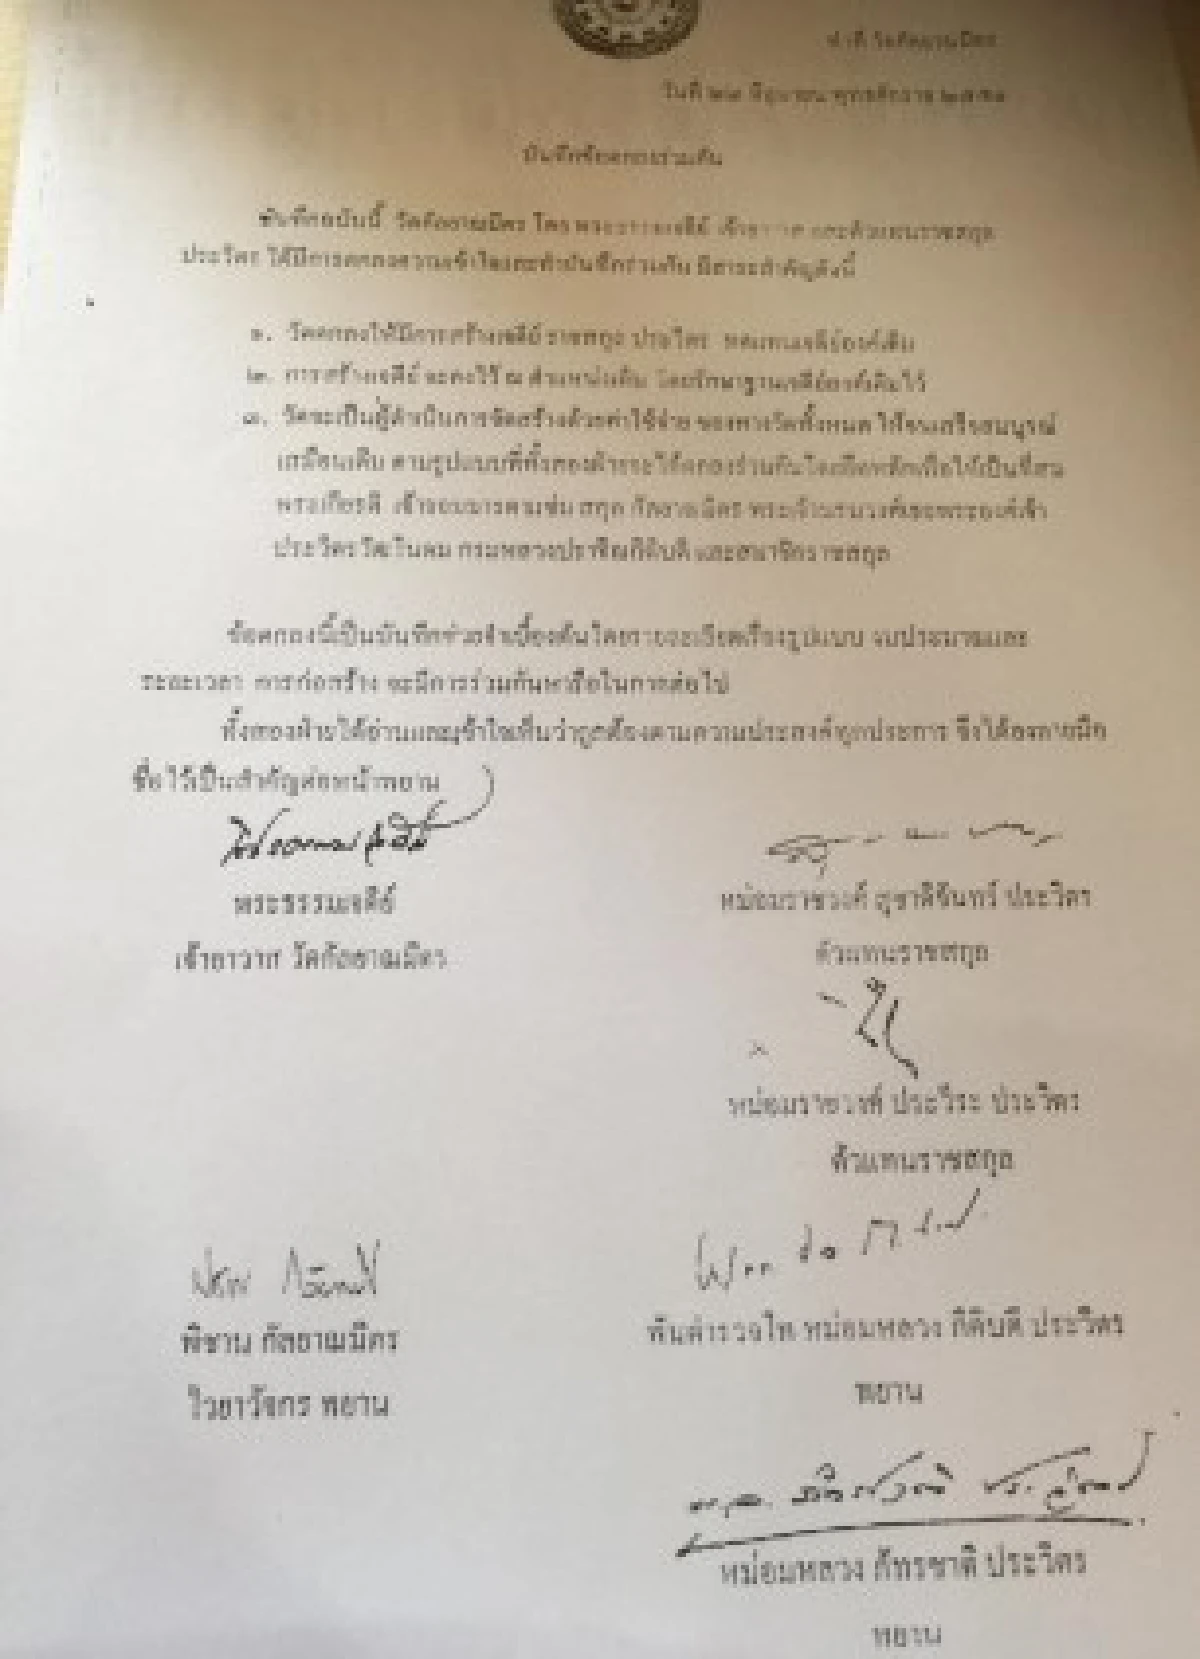 วัดกัลยาณมิตร
วันที่ ๒๔ มิถุนายน พุทธศักราช
บันทึกข้อตกลงร่วมกัน
บันทึกฉบับนี้ วัดกัลยาณมิตร โดย พระธรรมเจดีย์ เจ้าอาวาส และตัวแทนราชสกุล
ประวิตร ได้มีการตกลงความเข้าใจและทำบันทึกร่วมกัน มีสาระสำคัญดังนี้
๑. วัดตกลงให้มีการสร้างเจดีย์ ราชสกุล ประวิตร ทดแทนเจดีย์องค์เดิม
๒. การสร้างเจดีย์ จะคงไว้ ณ ตำแหน่งเดิม โดยรักษาฐานเจดีย์องค์เดิมไว้
๓. วัดจะเป็นผู้ดำเนินการจัดสร้างด้วยค่าใช้จ่าย ของทางวัดทั้งหมด ให้จนเสร็จสมบูรณ์
เหมือนเดิม ตามรูปแบบที่ทั้งสองฝ่ายจะได้ตกลงร่วมกันโดยยึดหลักเพื่อให้เป็นที่สม
พระเกียรติ เจ้าจอมมารดาแช่ม สกุล กัลยาณมิตร พระเจ้าบรมวงศ์เธอพระองค์เจ้า
ประวิตรวัฒโนดม กรมหลวงปราจิณกิติบดี และสมาชิกราชสกุล
ข้อตกลงนี้เป็นบันทึกช่วยจำเบื้องต้นโดยรายละเอียดเรื่องรูปแบบ งบประมาณและ
ระยะเวลา การก่อสร้าง จะมีการร่วมกันหารือในกาลต่อไป
ทั้งสองฝ่ายได้อ่านและเข้าใจเห็นว่าถูกต้องตามความประสงค์ทุกประการ จึงได้ลงลายมือ
ชื่อไว้เป็นสำคัญต่อหน้าพยาน
พระธรรมเจดีย์
หม่อมราชวงศ์ สุชาติจันทร์ ประวิตร
เจ้าอาวาส วัดกัลยาณมิตร
ตัวแทนราชสกุล
หม่อมราชวงศ์ ประวีระ ประวิตร
ตัวแทนราชสกุล
พิชาน กัลยาณมิตร
พันตำรวจโท หม่อมหลวง กิติบดี ประวิตร
ไวยาวัจกร พยาน
พยาน
หม่อมหลวง ภัทรชาติ ประวิตร
พยาน